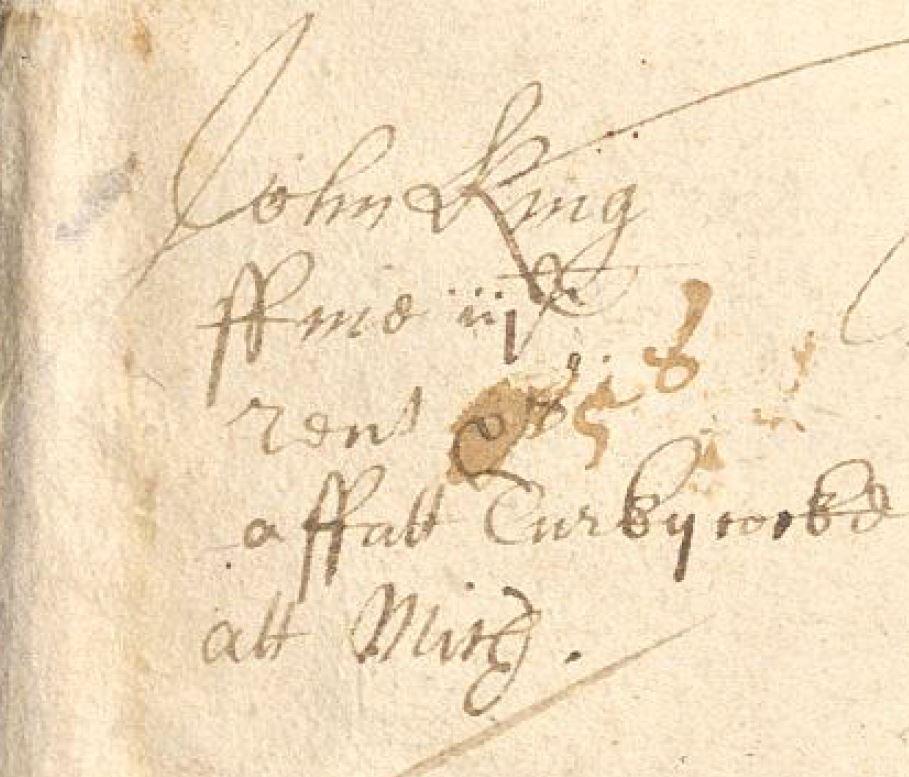 John King
ffine
rent
a ffatt Turkycocke
att Mich.